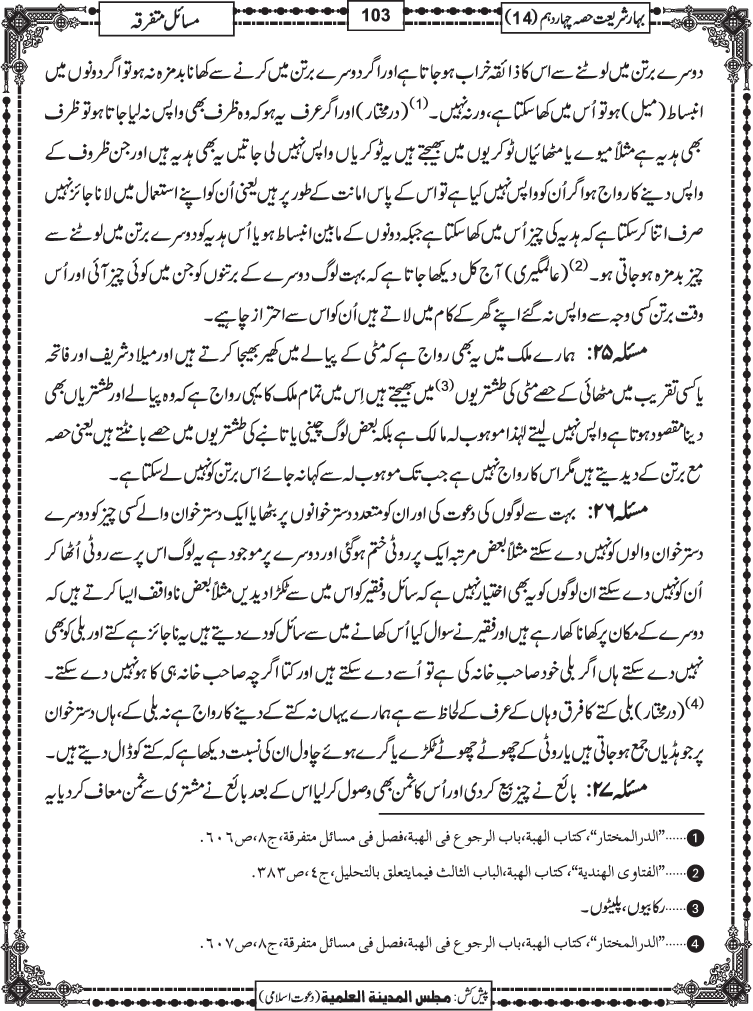 بہارشریعت حصہ چہاردہم (14)
103
مسائل متفرقہ
دوسرے برتن میں لوٹنے سے اس کا ذائقہ خراب ہوجاتا ہے اور اگر دوسرے برتن میں کرنے سے کھانا بدمزہ نہ ہو تو اگر دونوں میں
انبساط (میل) ہو تو اُس میں کھاسکتا ہے، ورنہ نہیں۔(1) (درمختار) اور اگر عرف یہ ہو کہ وہ ظرف بھی واپس نہ لیا جاتا ہو تو ظرف
بھی ہدیہ ہے مثلاً میوے یا مٹھائیاں ٹوکریوں میں بھیجتے ہیں یہ ٹوکریاں واپس نہیں لی جاتیں یہ بھی ہدیہ ہیں اور جن ظروف کے
واپس دینے کا رواج ہو اگر اُن کو واپس نہیں کیا ہے تو اس کے پاس امانت کے طور پر ہیں یعنی اُن کو اپنے استعمال میں لانا جائز نہیں
صرف اتنا کرسکتا ہے کہ ہدیہ کی چیز اُس میں کھاسکتا ہے جبکہ دونوں کے مابین انبساط ہو یا اُس ہدیہ کو دوسرے برتن میں لوٹنے سے
چیز بدمزہ ہوجاتی ہو۔(2) (عالمگیری) آج کل دیکھا جاتا ہے کہ بہت لوگ دوسرے کے برتنوں کو جن میں کوئی چیز آئی اور اُس
وقت برتن کسی وجہ سے واپس نہ گئے اپنے گھر کے کام میں لاتے ہیں اُن کو اس سے احتراز چاہیے۔
مسئلہ ۲۵: ہمارے ملک میں یہ بھی رواج ہے کہ مٹی کے پیالے میں کھیر بھیجا کرتے ہیں اور میلاد شریف اور فاتحہ
یا کسی تقریب میں مٹھائی کے حصے مٹی کی طشتریوں(3) میں بھیجتے ہیں اِس میں تمام ملک کا یہی رواج ہے کہ وہ پیالے اور طشتریاں بھی
دینا مقصود ہوتا ہے واپس نہیں لیتے لہٰذا موہوب لہ مالک ہے بلکہ بعض لوگ چینی یا تانبے کی طشتریوں میں حصے بانٹتے ہیں یعنی حصہ
مع برتن کے دیدیتے ہیں مگر اس کا رواج نہیں ہے جب تک موہوب لہ سے کہا نہ جائے اس برتن کو نہیں لے سکتا ہے۔
مسئلہ ۲۶: بہت سے لوگوں کی دعوت کی اور ان کو متعدد دسترخوانوں پر بٹھایا ایک دسترخوان والے کسی چیز کو دوسرے
دسترخوان والوں کو نہیں دے سکتے مثلاً بعض مرتبہ ایک پر روٹی ختم ہوگئی اور دوسرے پر موجود ہے یہ لوگ اس پر سے روٹی اُٹھا کر
اُن کو نہیں دے سکتے ان لوگوں کو یہ بھی اختیار نہیں ہے کہ سائل وفقیر کو اس میں سے ٹکڑا دیدیں مثلاً بعض ناواقف ایسا کرتے ہیں کہ
دوسرے کے مکان پر کھانا کھارہے ہیں اور فقیر نے سوال کیا اُس کھانے میں سے سائل کو دے دیتے ہیں یہ ناجائز ہے کتے اور بلی کو بھی
نہیں دے سکتے ہاں اگر بلی خود صاحبِ خانہ کی ہے تو اُسے دے سکتے ہیں اور کتا اگرچہ صاحب خانہ ہی کا ہو نہیں دے سکتے۔
(4) (درمختار) بلی کتے کا فرق وہاں کے عرف کے لحاظ سے ہے ہمارے یہاں نہ کتے کے دینے کا رواج ہے نہ بلی کے، ہاں دسترخوان
پر جو ہڈیاں جمع ہوجاتی ہیں یا روٹی کے چھوٹے چھوٹے ٹکڑے یا گرے ہوئے چاول ان کی نسبت دیکھا ہے کہ کتے کو ڈال دیتے ہیں۔
مسئلہ ۲۷: بائع نے چیز بیع کردی اور اُس کا ثمن بھی وصول کرلیا اس کے بعد بائع نے مشتری سے ثمن معاف کردیا یہ
1......”الدرالمختار“، کتاب الھبة، باب الرجوع فی الھبة، فصل فی مسائل متفرقة، ج٨، ص٦٠٦.
2......”الفتاوی الھندیة“، کتاب الھبة، الباب الثالث فیما یتعلق بالتحلیل، ج٤، ص٣٨٣.
3......رکابیوں، پلیٹوں۔
4......”الدرالمختار“، کتاب الھبة، باب الرجوع فی الھبة، فصل فی مسائل متفرقة، ج٨، ص٦٠٧.
پیش کش: مجلس المدینة العلمیة (دعوت اسلامی)